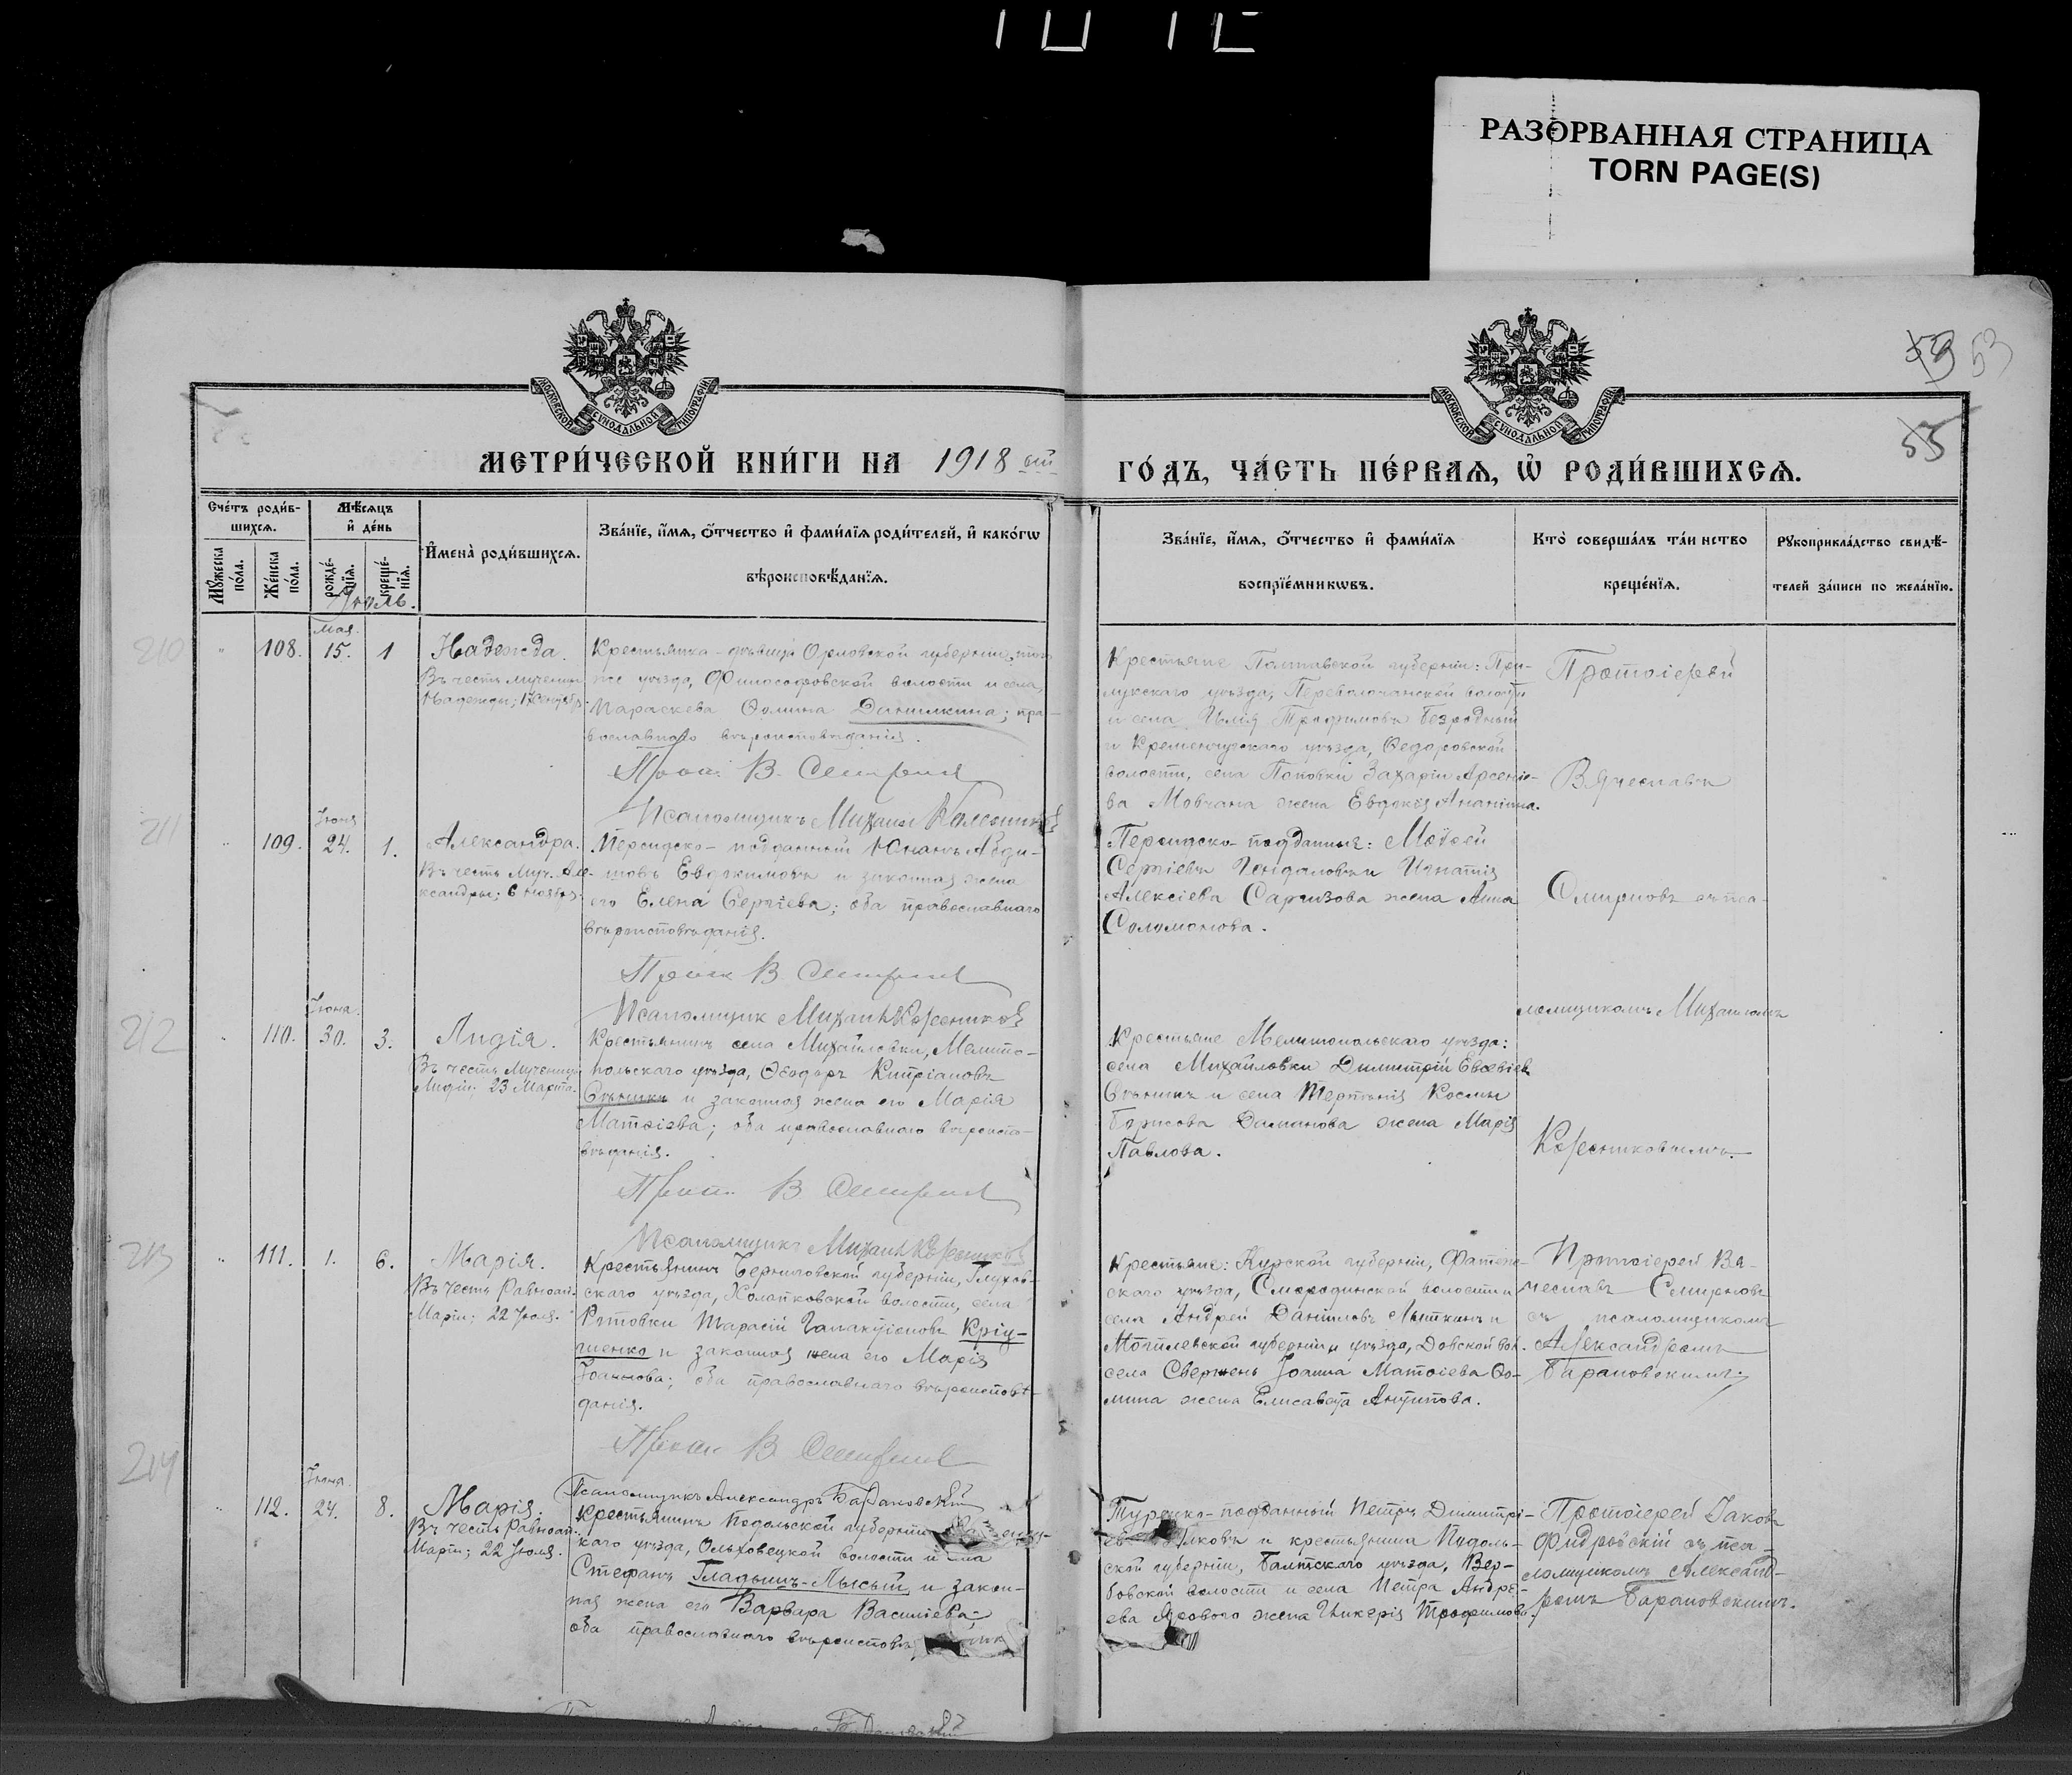 РАЗОРВАННАЯ СТРАНИЦА
TORN PAGE(S)
59 53
55
МОСКОВСКОЙ СУНОДАЛЬНОЙ ТИПОГРАФІИ
МОСКОВСКОЙ СУНОДАЛЬНОЙ ТИПОГРАФІИ
МЕТРИ́ЧЕСКОЙ КНИ́ГИ НА 1918 ый
ГО́ДЪ, ЧА́СТЬ ПЕ́РВАЯ, Ѡ҆ РОДИ́ВШИХСѦ.
Сче́тъ роди́в-
шихся.
Мꙋжеска по́ла.
Же́нска по́ла.
Мѣ́сяцъ
и҆ де́нь
рожде́-
нїя.
креще́-
нїя.
И҆мена̀ роди́вшихся.
Зва́нїе, и҆́мя, ѻ҆́тчество и҆ фами́лїя роди́телей, и҆ како́гѡ
вѣроисповѣ́данїя.
Зва́нїе, и҆́мя, ѻ҆́тчество и҆ фами́лїя
воспрїе́мникѡвъ.
Кто̀ соверша́лъ та́инство
креще́нїя.
Рꙋкоприкла́дство свидѣ́-
телей за́писи по жела́нїю.
Іюль.
210
108.
Мая.
15.
1
Надежда.
Въ честь мученицы
Надежды; 17 Сентябр.
Крестьянка-дѣвица Орловской губерніи, того
же уѣзда, Философовской волости и села,
Параскева Ѳомина Данилкина; пра-
вославнаго вѣроисповѣданія.
Прот. В. Смирновъ
Псаломщикъ Михаилъ Колесниковъ
Крестьяне Полтавской губерніи: При-
лукскаго уѣзда, Переволочанской волости
и села Илія Трофимовъ Безродный
и Кременчугскаго уѣзда, Ѳедоровской
волости, села Поповки Захаріи Арсеніе-
ва Мовчана жена Евдокія Ананіина.
Протоіерей
Вячеславъ
211
109.
Іюня
24.
1.
Александра.
Въ честь Муч. Але-
ксандры; 6 ноября.
Персидско-подданный Юнанъ Абди-
шовъ Евдокимовъ и законная жена
его Елена Сергіева; оба православнаго
вѣроисповѣданія.
Прот. В. Смирновъ
Псаломщик Михаилъ Колесниковъ
Персидско-подданные: Моѵсей
Сергіевъ и Игнатія
Алексіева Саргизова жена Анна
Соломонова.
Смирновъ съ пса-
ломщикомъ Михаиломъ
212
110.
Іюня.
30.
3.
Лидія.
Въ честь Мученицы
Лидіи; 23 Марта.
Крестьянинъ села Михайловки, Мелито-
польскаго уѣзда, Ѳеодоръ Кипріановъ
и законная жена его Марія
Матѳіева; оба православнаго вѣроиспо-
вѣданія.
Прот. В. Смирновъ
Псаломщикъ Михаилъ Колесниковъ
Крестьяне Мелитопольскаго уѣзда:
села Михайловки Димитрій Евсевіевъ
и села Терпѣнія Космы
Борисова Даманова жена Марія
Павлова.
Колесниковымъ.
213
111.
1.
6.
Марія.
Въ честь Равноап.
Маріи; 22 Іюля.
Крестьянинъ Черниговской губерніи, Глухов-
скаго уѣзда, Холопковской волости, села
Тарасій Галактіоновъ Кріу-
ченко и законная жена его Марія
Іоаннова; оба православнаго вѣроисповѣ-
данія.
Прот. В. Смирновъ
Псаломщикъ Александръ Барановскій
Крестьяне: Курской губерніи, Фатеж-
скаго уѣзда, Смородинской волости и
села Андрей Даніиловъ Лыткинъ и
Могилевской губерніи и уѣзда, Довской вол.
села Свержень Іоанна Матѳіева Ѳо-
мина жена Елисавета Антипова.
Протоіерей Вя-
чеславъ Смирновъ
съ псаломщикомъ
Александромъ
Барановскимъ.
214
112.
Іюня
24.
8.
Марія.
Въ честь Равноап.
Маріи; 22 Іюля.
Крестьянинъ Подольской губерніи
каго уѣзда, Ольховецкой волости и села
Стефанъ Гладышъ-Лысый и закон-
ная жена его Варвара Василіева
оба православнаго вѣроисповѣ
Турецко-подданный Петръ Димитрі-
евъ и крестьянина Подоль-
ской губерніи, Балтскаго уѣзда, Вер-
бовской волости и села Петра Андре-
ева Ярового жена Гликерія Трофимова.
Протоіерей Іаковъ
съ пса-
ломщикомъ Александ-
ромъ Барановскимъ.